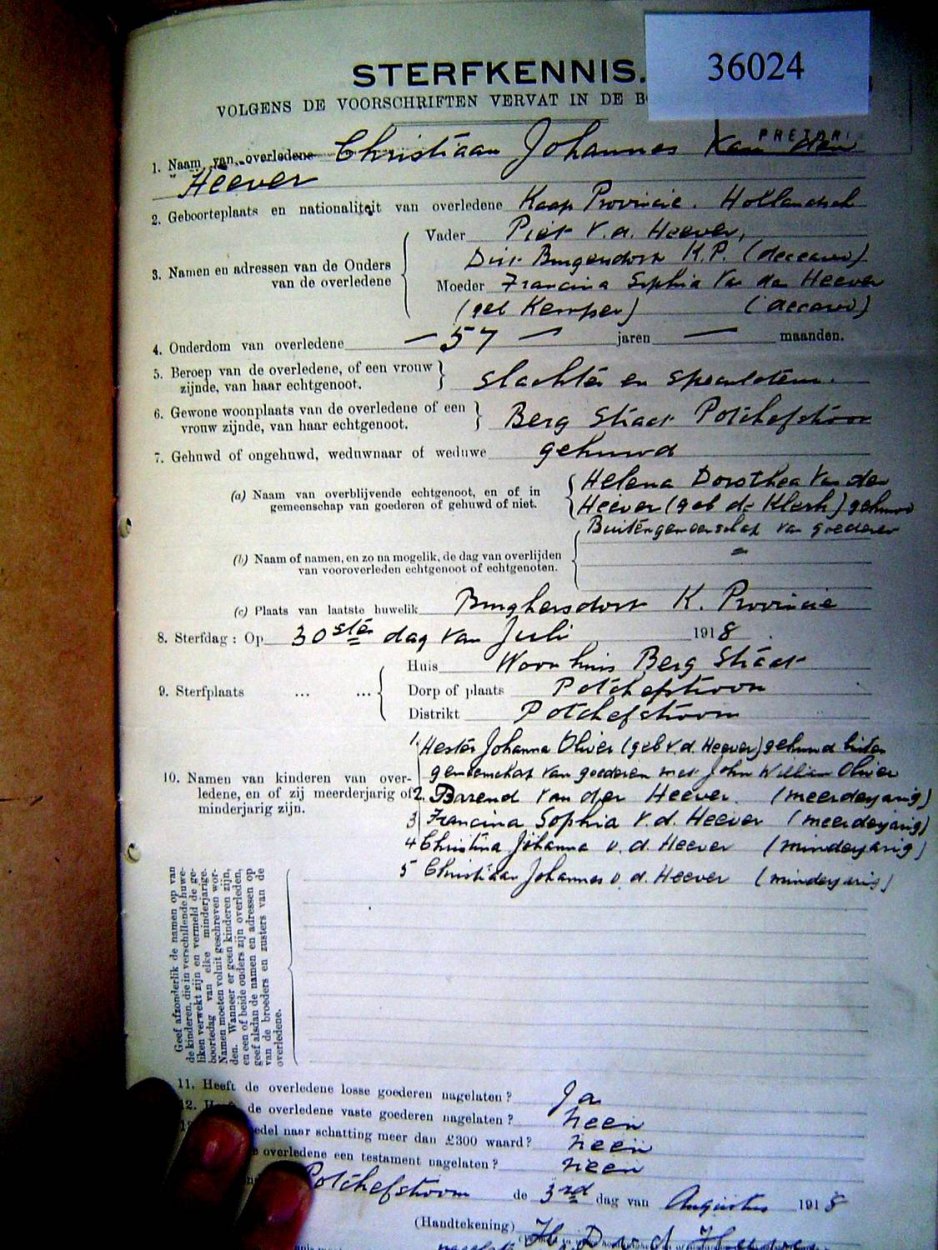 36024
STERFKENNIS.
VOLGENS DE VOORSCHRIFTEN VERVAT IN DE
PRETORI
1. Naam van overledene Christiaan Johannes Van Den
Heever
2. Geboorteplaats en nationaliteit van overledene Kaap Provincie. Hollandsch
3. Namen en adressen van de Ouders van de overledene
Vader Piet v.d. Heever,
Dist Burgersdorp K.P. (deceased)
Moeder Francina Sophia Van den Heever
(geb Kemper) (deceased)
4. Onderdom van overledene — 57 — jaren — maanden.
5. Beroep van de overledene, of een vrouw
zijnde, van haar echtgenoot. Slachter en
6. Gewone woonplaats van de overledene of een
vrouw zijnde, van haar echtgenoot. Berg Straat Potchefstroom
7. Gehuwd of ongehuwd, weduwnaar of weduwe gehuwd
(a) Naam van overblijvende echtgenoot, en of in
gemeenschap van goederen of gehuwd of niet.
Helena Dorothea Van der
Heever (geb de Klerk) gehuwd
Buitengemeenschap van goederen
(b) Naam of namen, en zo na mogelik, de dag van overlijden
van vooroverleden echtgenoot of echtgenoten. –
(c) Plaats van laatste huwelik Burghersdorp K. Provincie
8. Sterfdag: Op 30ste dag van Juli 1918.
9. Sterfplaats ... ...
Huis Woon huis Berg Straat
Dorp of plaats Potchefstroom
Distrikt Potchefstroom
10. Namen van kinderen van over-
ledene, en of zij meerderjarig of
minderjarig zijn.
1. Hester Johanna Olivier (geb v.d. Heever) gehuwd buiten
gemeenschap van goederen met John William Olivier
2. Barend Van der Heever. (meerderjarig)
3 Francina Sophia v.d. Heever (meerderjarig)
4 Christina Johanna v.d. Heever (minderjarig)
5 Christiaan Johannes v.d. Heever (minderjarig)
Geef afzonderlik de namen op van
de kinderen, die in verschillende huwe-
liken verwekt zijn en vermeld de ge-
boortedag van elke minderjarige.
Namen moeten voluit geschreven wor-
den. Wanneer er geen kinderen zijn,
en een of beide ouders zijn overleden,
geef alsdan de namen en adressen op
van de broeders en zusters van de
overledene.
11. Heeft de overledene losse goederen nagelaten? Ja
12. Heeft de overledene vaste goederen nagelaten? neen
edel naar schatting meer dan £300 waard? neen
e overledene een testament nagelaten? neen
Potchefstroom de 3rd dag van Augustus 1918
(Handtekening) H. D. v d Heever